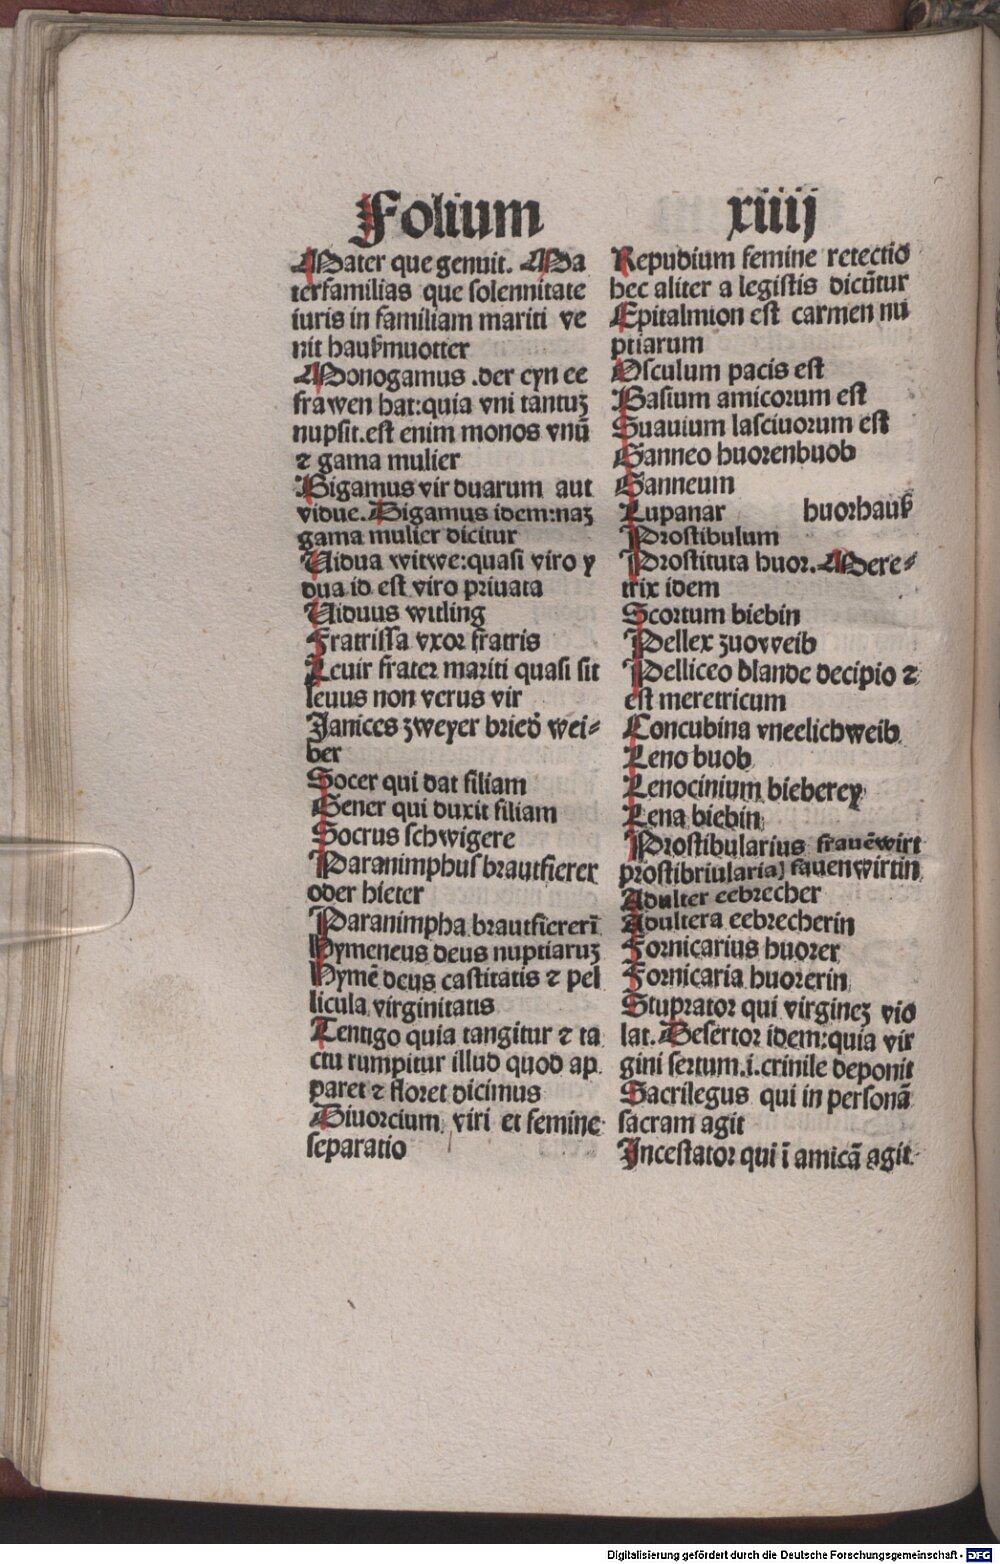 Folium xiiij
Mater que genuit. Ma
terfamilias que solennitate
iuris in familiam mariti ve
nit haußmuotter
Monogamus .der eyn ee
frawen hat:quia vni tantuȝ
nupsit.est enim monos vnū
⁊ gama mulier
Bigamus vir duarum aut
vidue. Digamus idem:naȝ
gama mulier dicitur
Uidua witwe:quasi viro y
dua id est viro priuata
Uiduus witling
Fratrissa vxor fratris
Leuir frater mariti quasi sit
leuus non verus vir
Janices zweyer bried̕ wei⸗
ber
Socer qui dat filiam
Gener qui duxit filiam
Socrus schwigere
Paranimphus brautfierer
oder hieter
Paranimpha brautfiererī
Hymeneus deus nuptiaruȝ
Hymē deus castitatis ⁊ pel
licula virginitatis
Tentigo quia tangitur ⁊ ta
ctu rumpitur illud quod ap
paret ⁊ floret dicimus
Diuorcium viri et femine
separatio
Repudium femine retectio
hec aliter a legistis dicūtur
Epitalmion est carmen nu
ptiarum
Osculum pacis est
Basium amicorum est
Suauium lasciuorum est
Ganneo huorenbuob
Ganneum
Lupanar huorhauß
Prostibulum
Prostituta huor. Mere⸗
trix idem
Scortum biebin
Pellex zuoweib
Pelliceo blande decipio ⁊
est meretricum
Concubina vneelichweib
Leno buob
Lenocinium bieberey
Lena biebin
Prostibularius frauēwirt
prostibriularia) fauenwirtin
Adulter eebrecher
Adultera eebrecherin
Fornicarius huorer
Fornicaria huorerin
Stuprator qui virgineȝ vio
lat. Desertor idem:quia vir
gini sertum.i.crinile deponit
Sacrilegus qui in personā
sacram agit
Incestator qui ī amicā agit
Digitalisierung gefördert durch die Deutsche Forschungsgemeinschaft - DFG